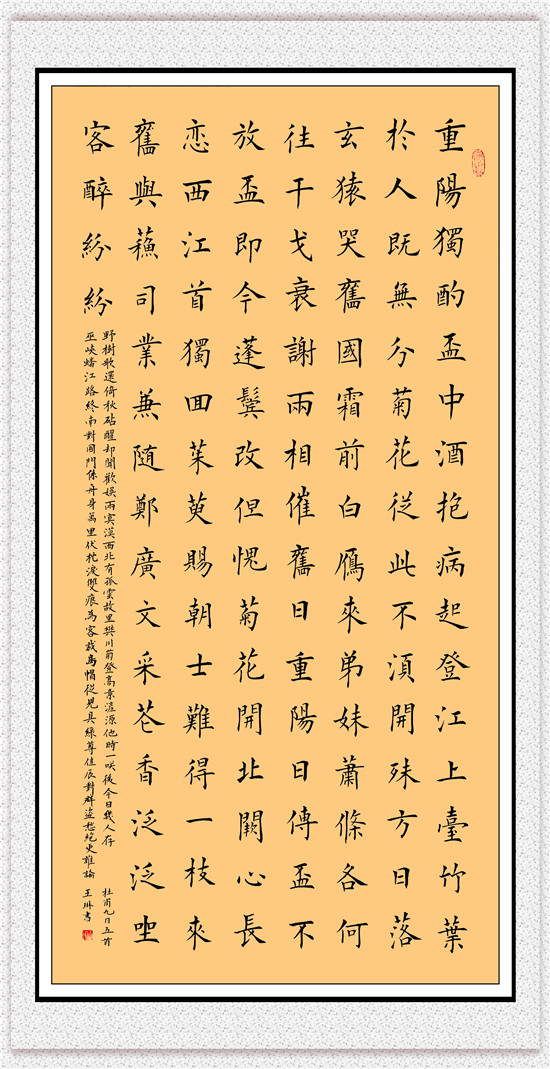 重陽獨酌盃中酒抱病起登江上臺竹葉
於人既無分菊花從此不須開殊方日落
玄猿哭舊國霜前白鴈來弟妹蕭條各何
往干戈衰謝兩相催舊日重陽日傳盃不
放盃即今蓬鬢改但愧菊花開北闕心長
恋西江首獨回茱萸賜朝士難得一枝來
舊與蘓司業兼随鄭廣文采芲香泛泛坐
客醉紛紛
野樹歌還倚秋砧醒却聞歡娱兩冥漠西北有孤雲故里樊川菊登高素滻源他時一咲後今日幾人存
巫峽蟠江路終南對國門係舟身萬里伏枕淚雙痕為客裁烏帽從兒具綠尊佳辰對群盗愁絕更誰論
杜甫九日五首
王琳書